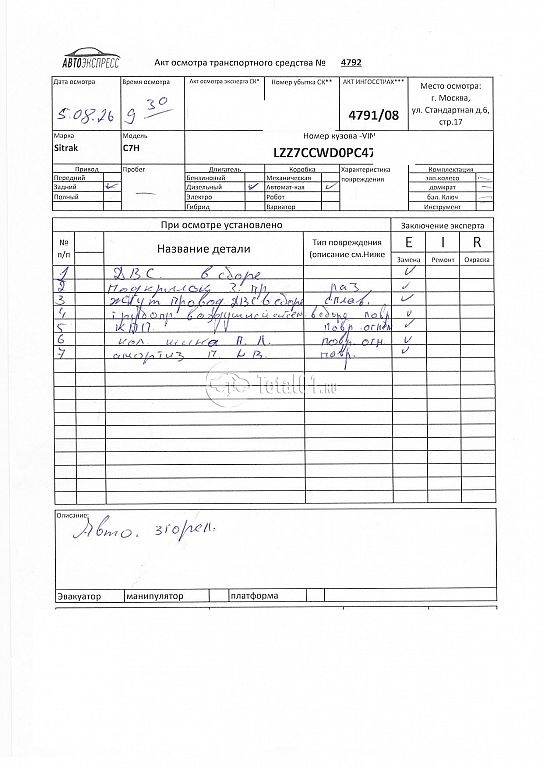 АВТОЭКСПРЕСС
Акт осмотра транспортного средства № 4792
Дата осмотра Время осмотра Акт осмотра эксперта СК* Номер убытка СК** АКТ ИНГОССТРАХ***
5.08.26 9 30 4791/08
Место осмотра:
г. Москва,
ул. Стандартная д.6,
стр.17
Марка Модель Номер кузова -VIN
Sitrak C7H LZZ7CCWD0PC47
Привод Пробег Двигатель Коробка Характеристика повреждения Комплектация
Передний Бензиновый Механическая зап.колесо
Задний Дизельный Автомат-кая домкрат
Полный Электро Робот бал. Ключ
Гибрид Вариатор Инструмент
При осмотре установлено Заключение эксперта
№ п/п Название детали Тип повреждения (описание см.Ниже E I R
Замена Ремонт Окраска
1 ДВС в сборе
2 Подкрылок З. пр. раз
3 Жгут провод ДВС в сборе сплав.
4 воздушной в сборе повр
5 КПП повр огнем
6 кол. шина П. Л. повр. огн.
7 амортиз П. повр.
Total01.ru
Описание:
Авто. згорел.
Эвакуатор манипулятор платформа